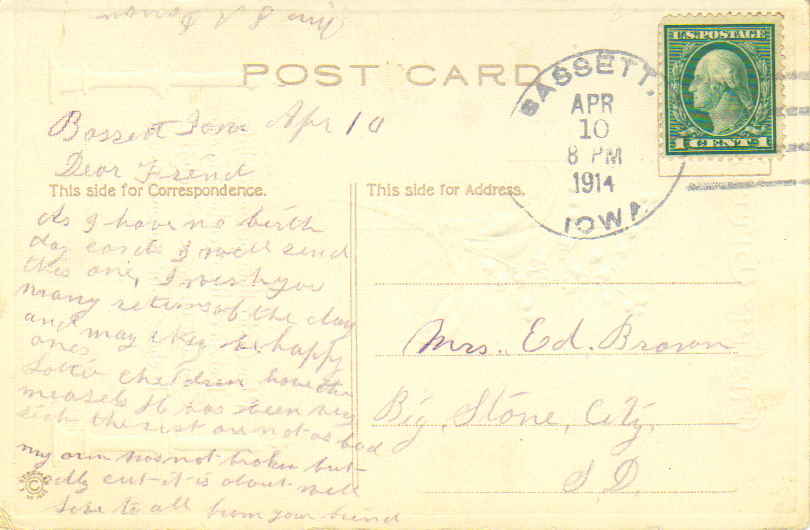 POST CARD
U.S. POSTAGE
1 CENT 1
BASSETT,
APR
10
8 PM
1914
IOWA
Bassett Iowa Apr 10
Dear Friend
This side for Correspondence.
As I have no birth
day cards I will send
this one, I wish you
many returns of the day
and may they be happy
ones
children have the
measels has been very
sick the rest are not as bad
my arm was not broken but
badly cut it is about well
to all from your friend
This side for Address.
Mrs. Ed. Brown
Big, Stone, City,
S D.